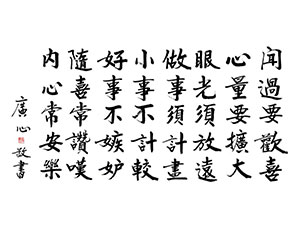 聞過要歡喜
心量要擴大
眼光須放遠
做事須計畫
小事不計較
好事不嫉妒
隨喜常讚嘆
內心常安樂
廣心敬書